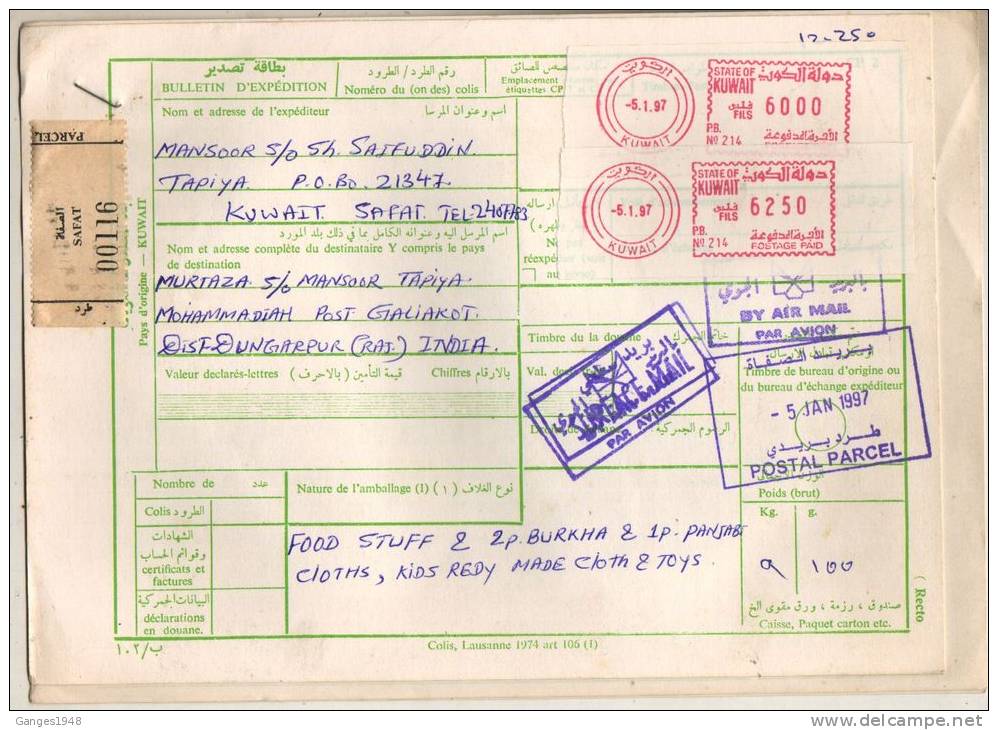 12-250
بطاقة تصدير
BULLETIN D'EXPÉDITION
رقم الطرد / الطرود
Numéro du (on des) colis
Emplacement
étiquettes CP
STATE OF KUWAIT دولة الكويت
الكويت
-5.1.97
KUWAIT
فلس
FILS
6000
P.B.
Nº 214
الأجرة المدفوعة
STATE OF KUWAIT دولة الكويت
الكويت
-5.1.97
KUWAIT
فلس
FILS
6250
P.B.
Nº 214
الأجرة المدفوعة
POSTAGE PAID
PARCEL
SAFAT
001116
طرد
Pays d'origine — KUWAIT
Nom et adresse de l'expéditeur
اسم وعنوان المرسا
MANSOOR S/O Sh. SAIFUDDIN
TAPIYA. P.O.BO. 21347
KUWAIT. SAFAT. TEL-2407783
اسم المرسل اليه وعنوانه الكامل بما في ذلك بلد المورد
Nom et adresse complète du destinataire Y compris le pays
de destination
MURTAZA S/O MANSOOR TAPIYA.
MOHAMMADIAH POST GALIAKOT.
DIST. DUNGARPUR (RAJ.) INDIA.
Valeur declarés-lettres
قيمة التأمين (بالاحرف)
Chiffres بالارقام
Timbre de la
Val. des
الرسوم الجمركية
البريد الجوي
BY AIR MAIL
PAR AVION
BY AIR MAIL
PAR AVION
Timbre de bureau d'origine ou
du bureau d'échange expéditeur
بريد الصفاة
- 5 JAN 1997
طرد بريدي
POSTAL PARCEL
Poids (brut)
Kg. g.
9 100
Nombre de عدد
Nature de l'amballage (I) (١) نوع الغلاف
Colis الطرود
الشهادات
وقوائم الحساب
certificats et
factures
البيانات الجمركية
déclarations
en douane.
FOOD STUFF & 2P. BURKHA & 1P. PANJABI
CLOTHS, KIDS REDY MADE CLOTH & TOYS.
صندوق ، رزمة ، ورق مقوى الخ
Caisse, Paquet carton etc.
(Recto
ب/١٠٢
Colis, Lausanne 1974 art 106 (I)
Ganges1948
delcampe.net